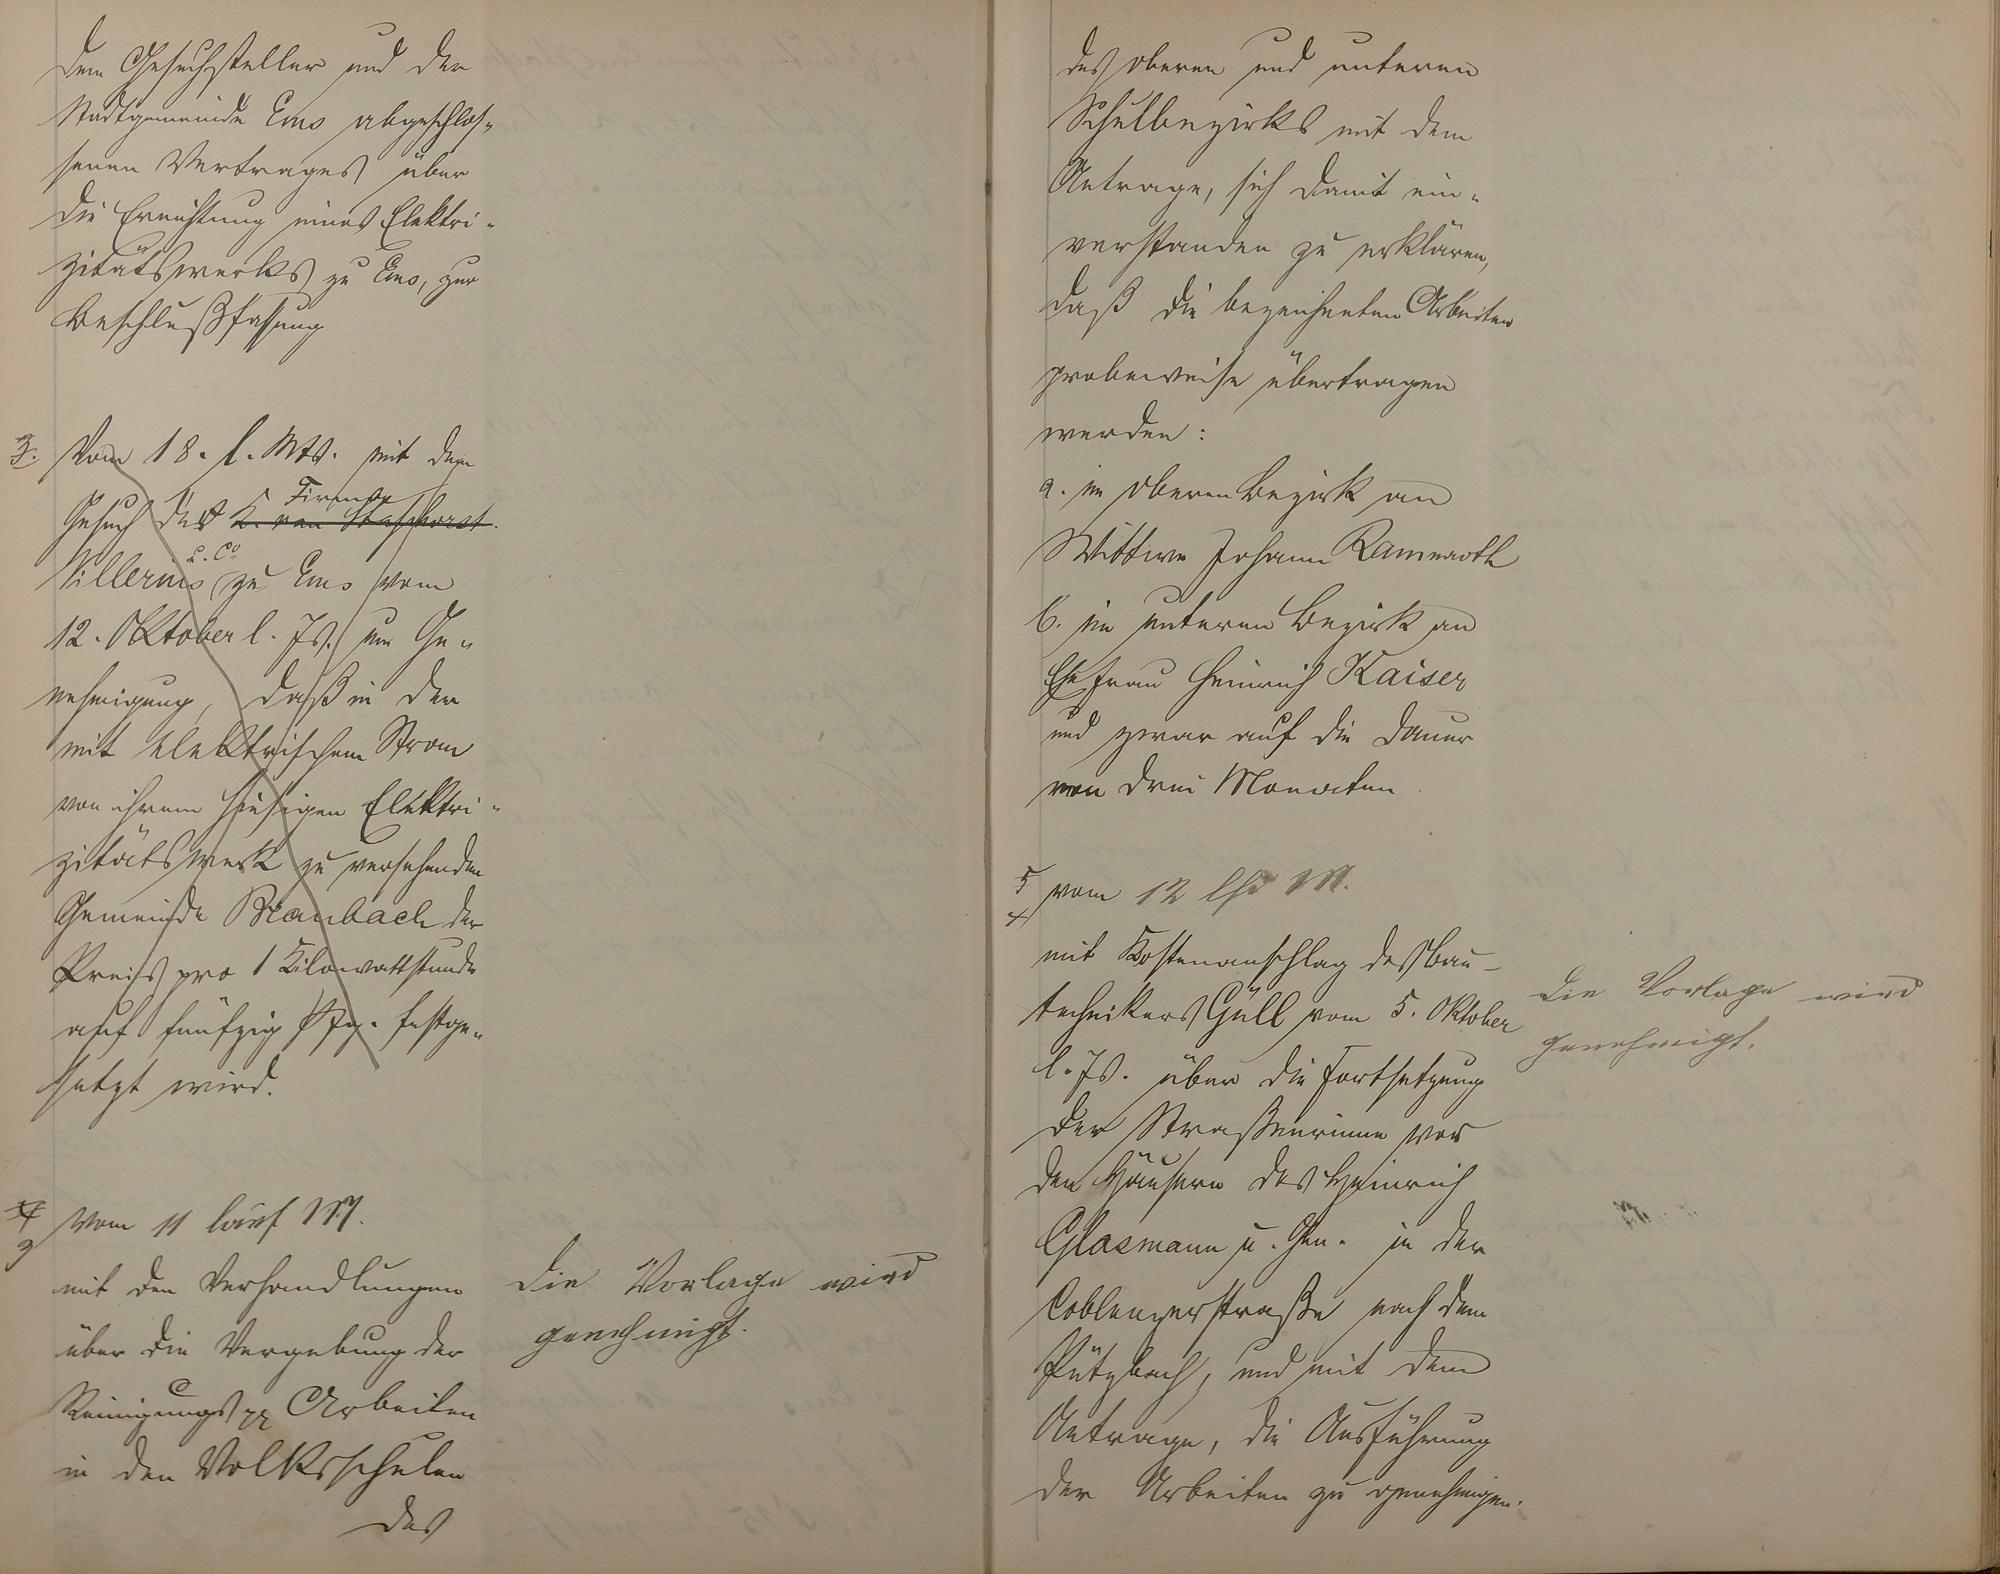 dem Gesuchsteller und der
Stadtgemeinde Ems abgeschlos-
senen Vertrages über
die Errichtung eines Elektri-
zitätswerks zu Ems, zur
Beschlußfassung
3. Vom 18. l. Mts. mit dem
Gesuch der Firma
Willerius u. Co zu Ems vom
12. Oktober l. Js. um Ge-
nehmigung, daß in der
mit elektrischem Strom
von ihrem hiesigen Elektri-
zitätswerk zu versehenden
Gemeinde Braubach der
Preis pro 1 Kilowattstunde
auf fünfzig Pfg. festge-
setzt wird.
4 Vom 11 lauf M.
3
mit den Verhandlungen
über die Vergebung der
Reinigungs pp Arbeiten
in den Volksschulen
des
Die Vorlage wird
genehmigt.
des oberen und unteren
Schulbezirks mit dem
Antrage, sich damit ein-
verstanden zu erklären,
daß die bezeichneten Arbeiten
probeweise übertragen
werden:
a. im oberen Bezirk an
Wittwe Johann Ramroth
b. im unteren Bezirk an
Ehefrau Heinrich Kaiser
und zwar auf die Dauer
von drei Monaten
5 vom 12 lfd M.
4
mit Kostenanschlag des Bau-
technikers Güll vom 5. Oktober
l. Js. über die Fortsetzung
der Straßenrinne vor
den Häusern des Heinrich
Glasmann u. Gen. in der
Coblenzerstraße nach dem
Pützbach, und mit dem
Antrage, die Ausführung
der Arbeiten zu genehmigen.
Die Vorlage wird
genehmigt.